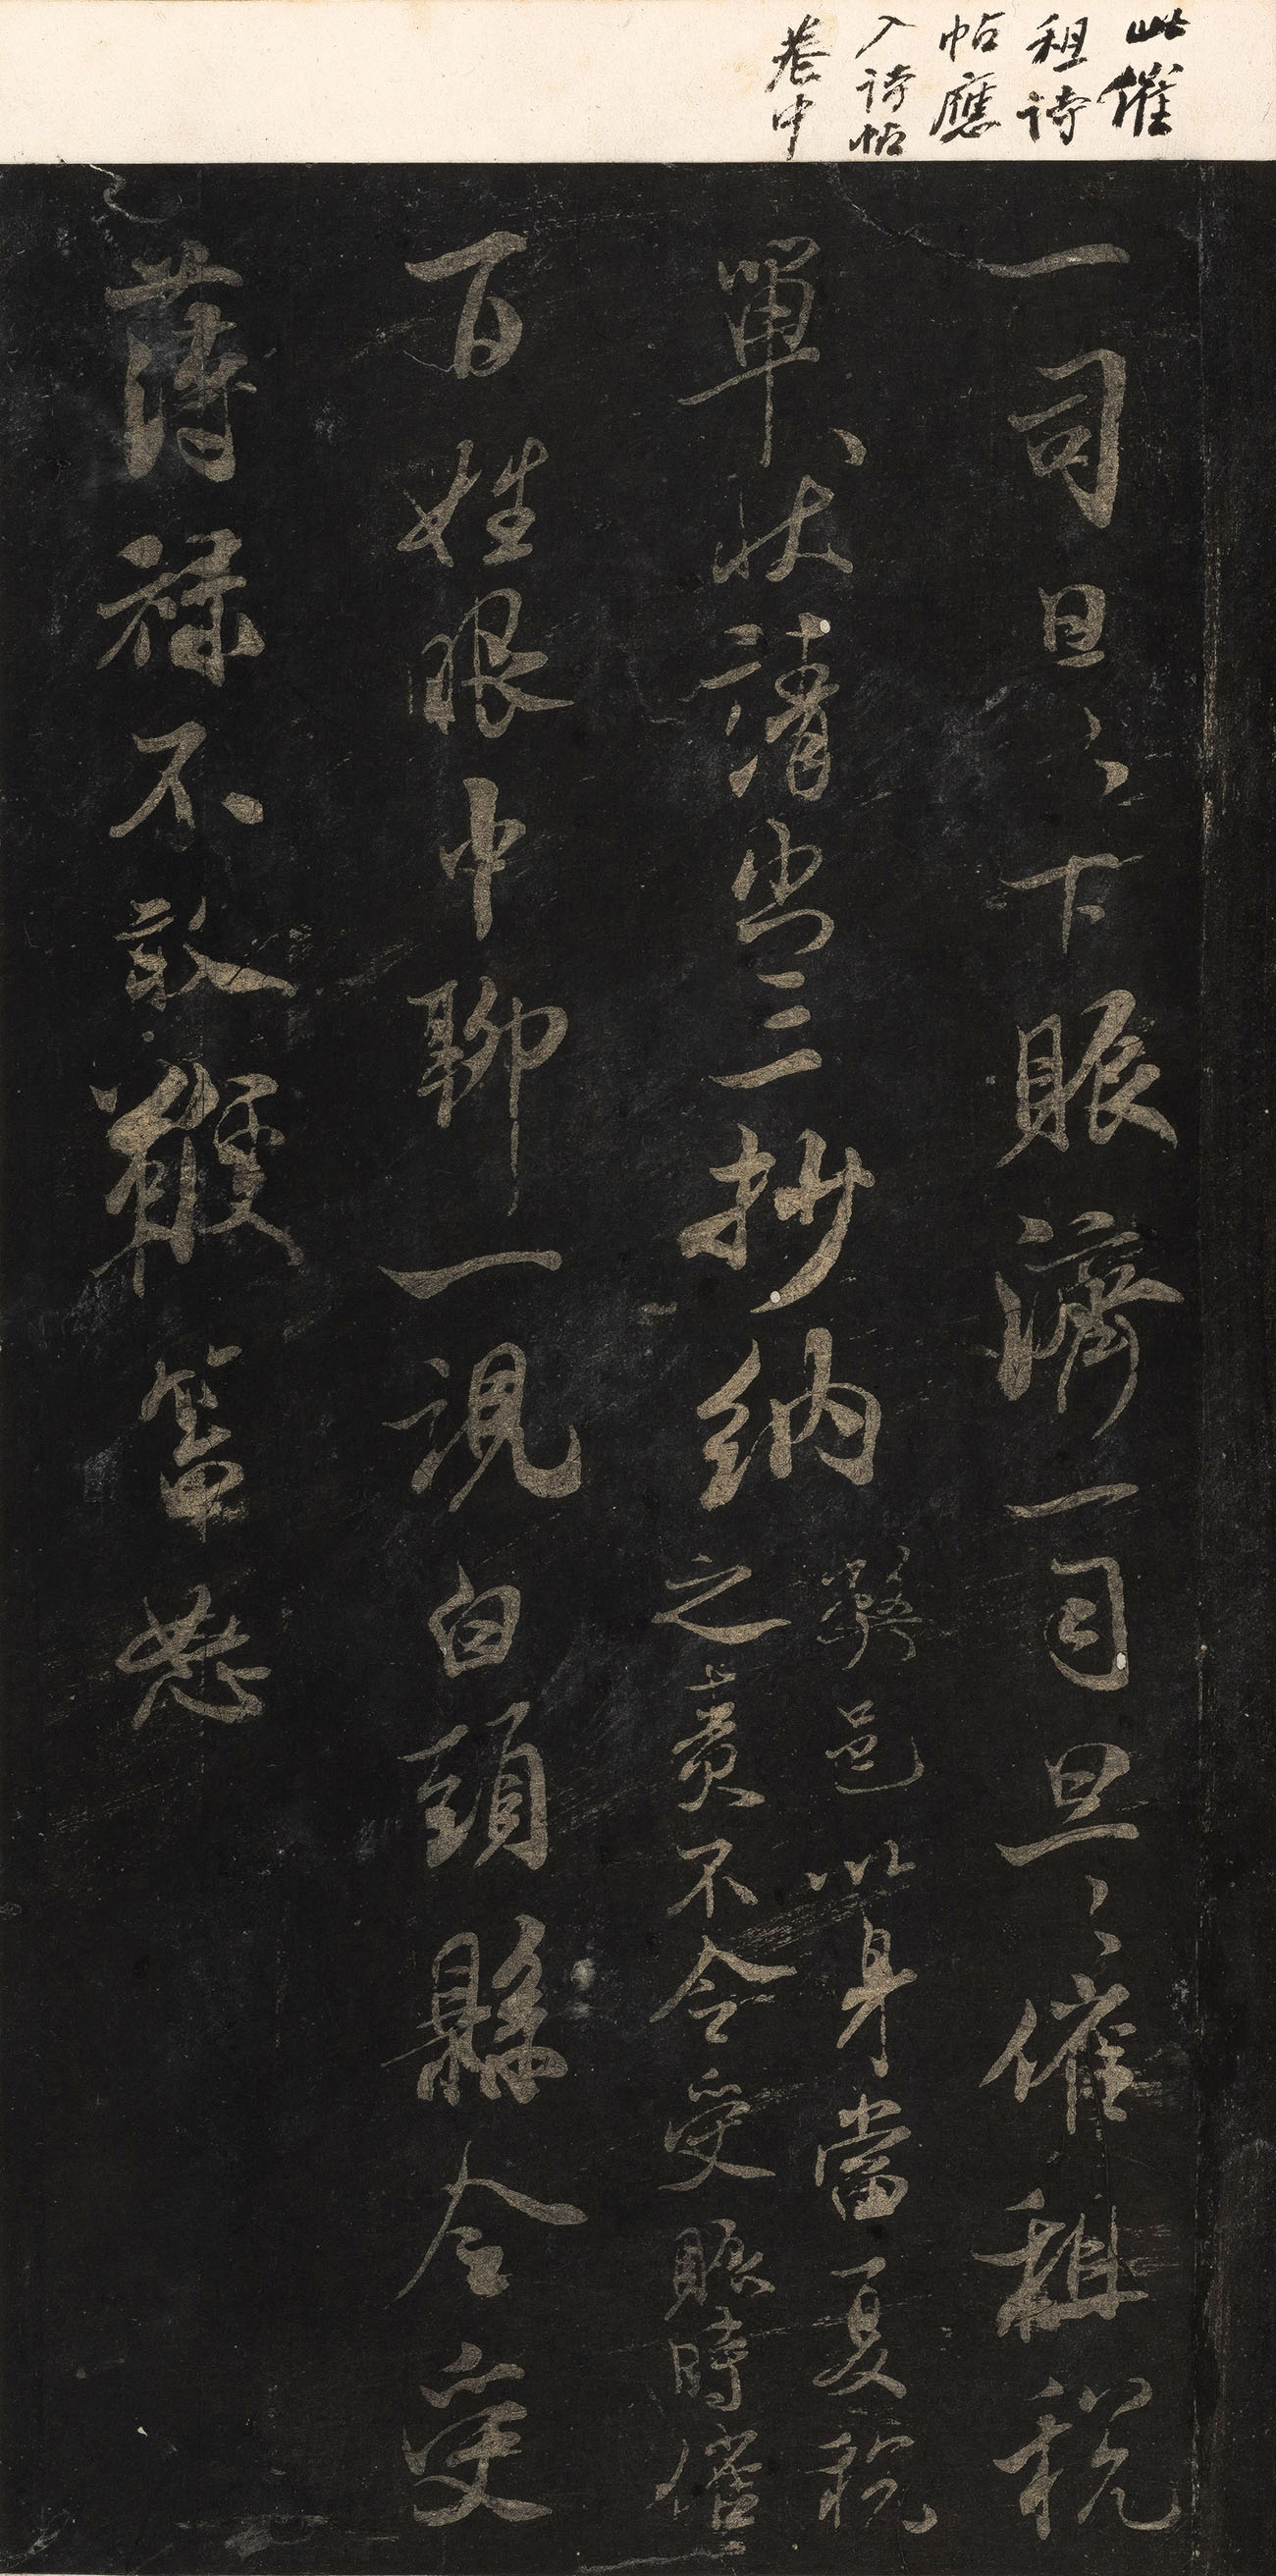 此催
租詩
帖應
入詩帖
卷中
一司旦々下賑濟一司旦々催租稅
單狀請出三抄納
弊邑以身當夏稅
之責不令受賑時催
百姓眼中聊一視白頭縣令受
薄祿不敢鞭箠怒